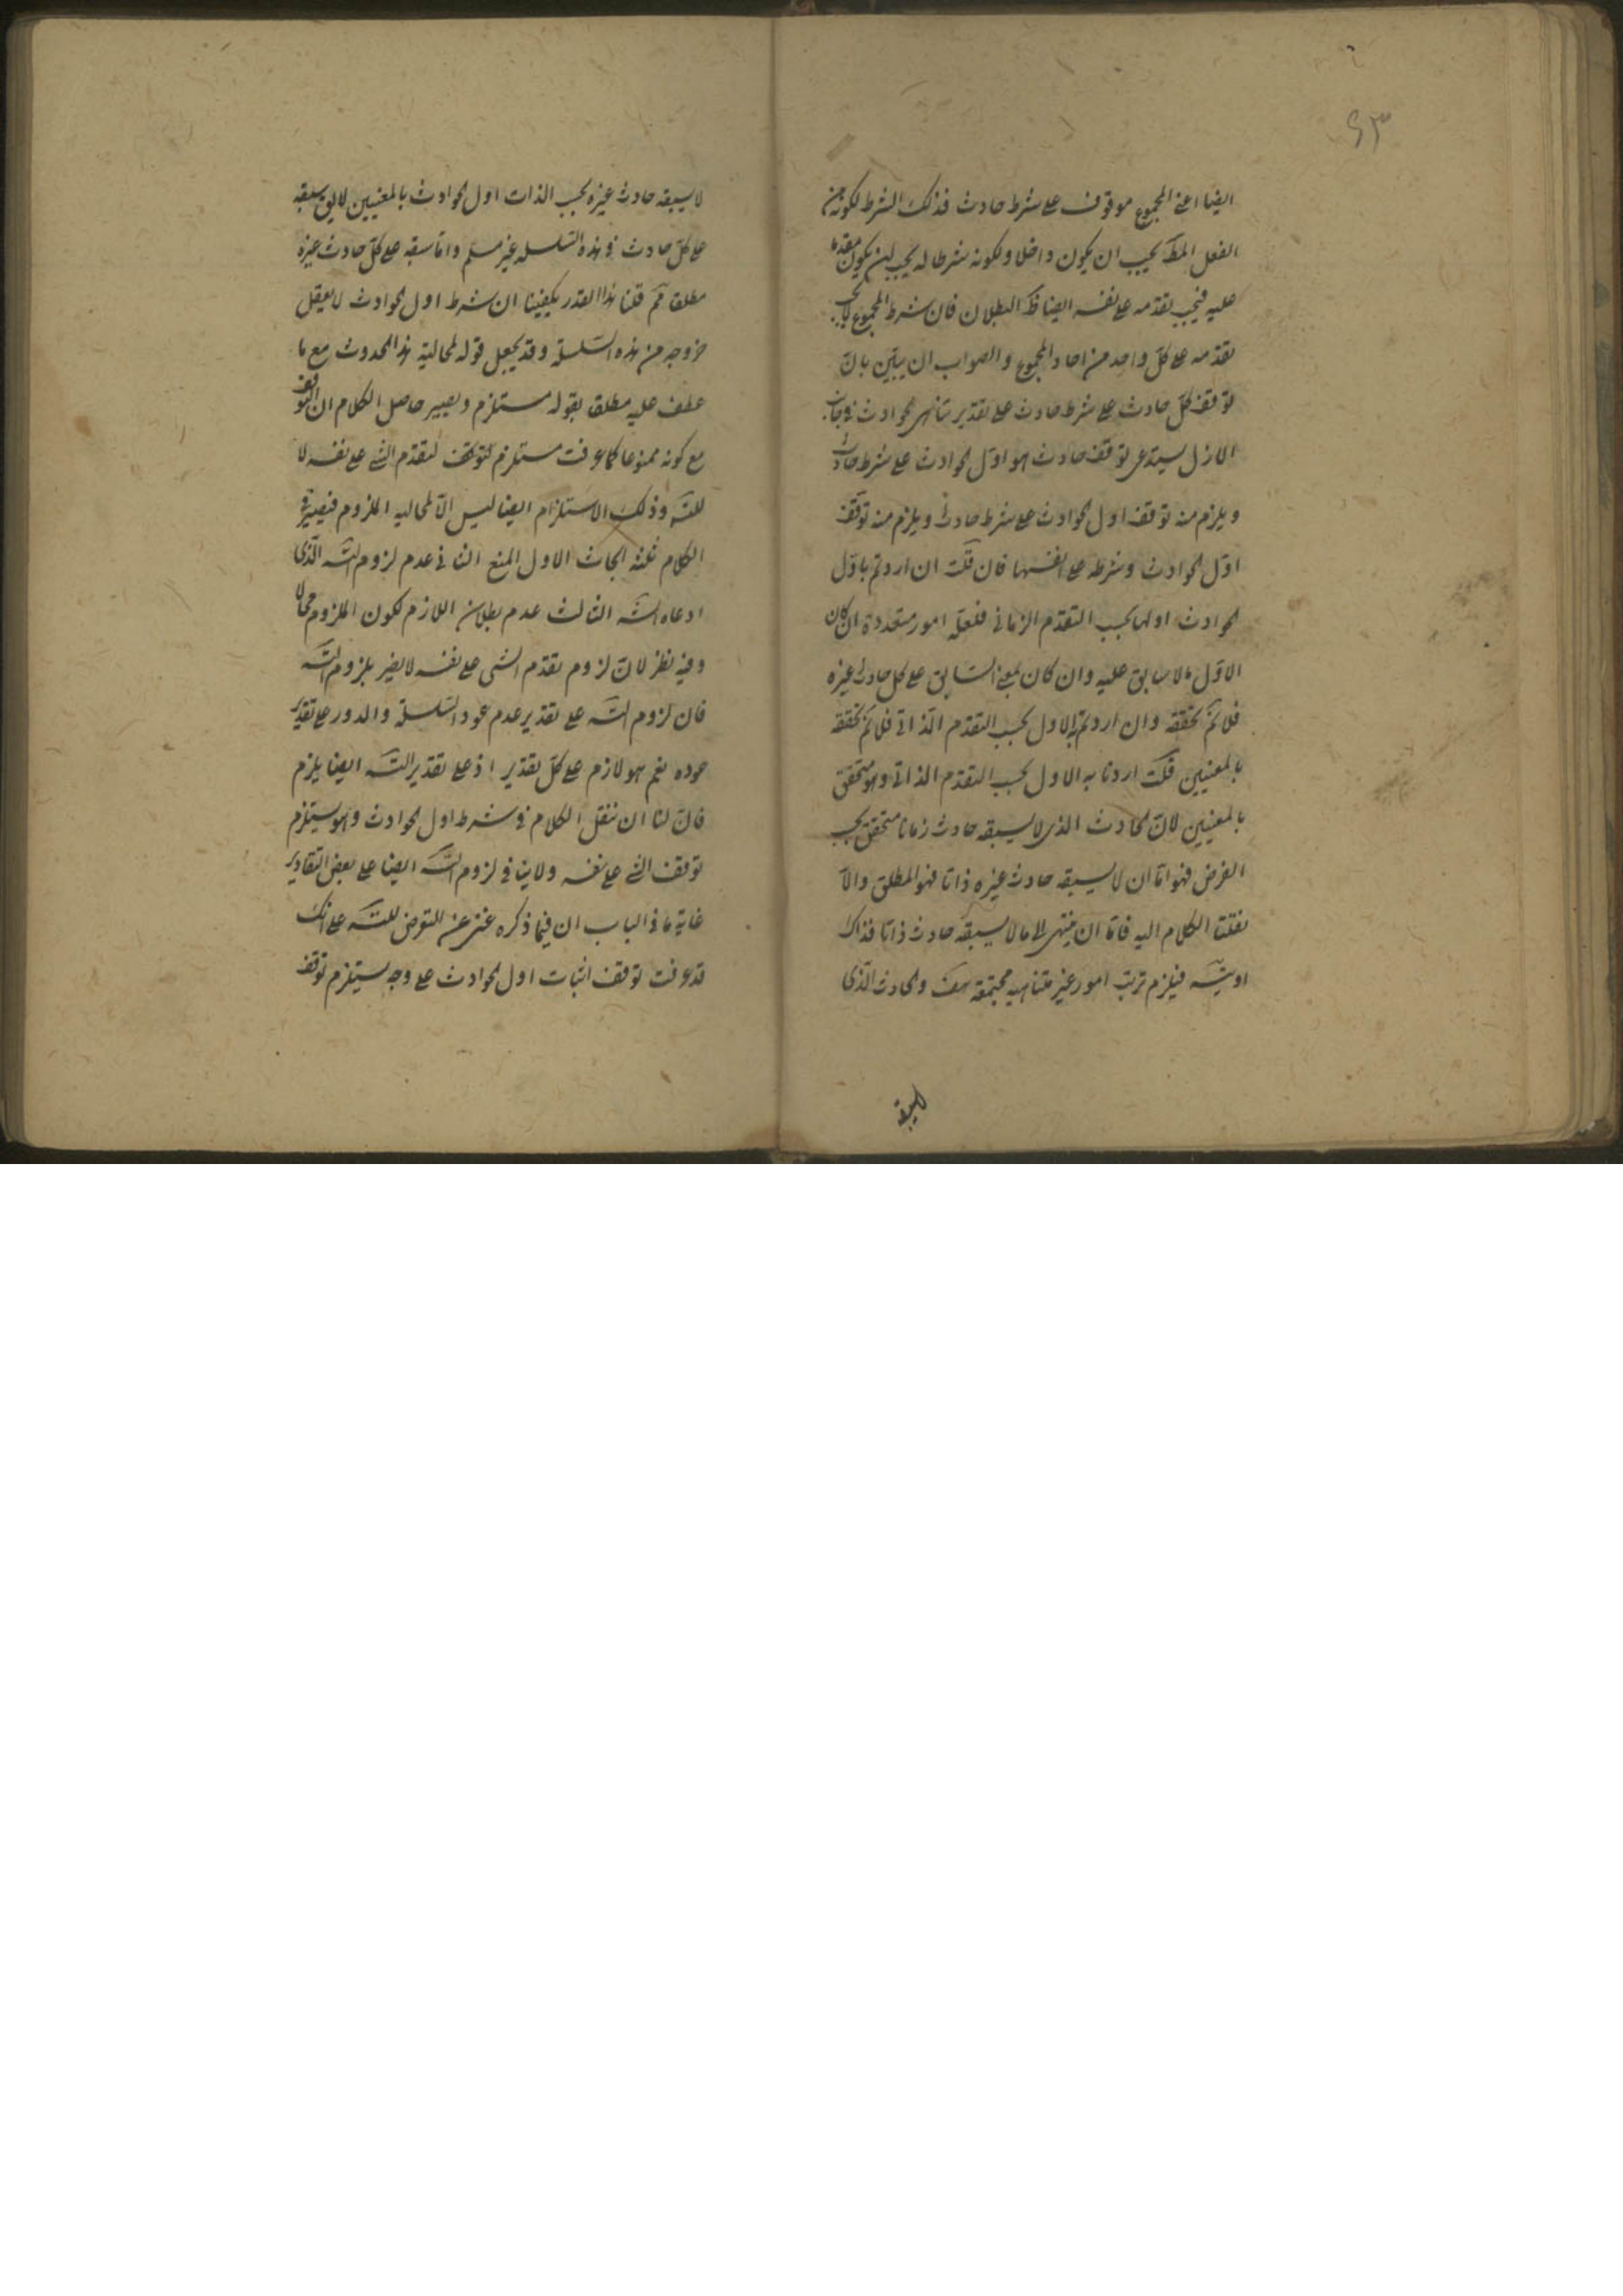 ٦٣
ايضا اعنى المجموع موقوف على شرط حادث فذلك الشرط لكونه من
الفعل المط يجب ان يكون داخلا ولكونه شرطا له يجب ان يكون مقدما
عليه فيجب تقدمه على نفسه ايضا ظ البطلان فان شرط المجموع لا يجب
تقدمه على كل واحد من احاد المجموع والصواب ان يبين بان
توقف كل حادث على شرط حادث على تقدير تناهى الحوادث فى جانب
الازل يستدعى توقف حادث هو اول الحوادث على شرط حادث
ويلزم منه توقف اول الحوادث على شرط حادث ويلزم منه توقف
اول الحوادث وشرطه على انفسها فان قلت ان اردتم باول
الحوادث اولها بحسب التقدم الزمانى فلعله امور متعددة ان كان
الاول ما لا سابق عليه وان كان بمعنى السابق على كل حادث غيره
فلا نم تحققه وان اردتم به الاول بحسب التقدم الذاتى فلا نم تحققه
بالمعنيين قلت اردنا به الاول بحسب التقدم الذاتى وهو متحقق
بالمعنيين لان الحادث الذى لا يسبقه حادث زمانا متحقق بحسب
الفرض فهو اما ان لا يسبقه حادث غيره ذاتا فهو المطلق والا
نقلنا الكلام اليه فاما ان ينتهى الى ما لا يسبقه حادث ذاتا فذاك
او يتسه فيلزم ترتب امور غير متناهيه مجتمعة هف والحادث الذى
لا يسبقه
لا يسبقه حادث غيره بحسب الذات اول الحوادث بالمعنيين لا يق سبقه
على كل حادث فى هذه السلسله غير مسلم واما سبقه على كل حادث غيره
مطلقا فمم قلنا هذا القدر يكفينا ان شرط اول الحوادث لا يعقل
خروجه من هذه السلسلة وقد يجعل قوله لمحالية هذا الحدوث مع ما
عطف عليه مطلقا بقوله مستلزم ويصير حاصل الكلام ان التوقف
مع كونه ممنوعا كما عرفت مستلزم للتوقف لتقدم الشئ على نفسه لا
للتسه وذلك الاستلزام ايضا ليس الا لمحاليه الملزوم فيصير فى
الكلام ثلثة ابحاث الاول المنع الثانى عدم لزوم التسه الذى
ادعاه الشه الثالث عدم بطلان اللازم لكون الملزوم محالا
وفيه نظر لان لزوم تقدم الشى على نفسه لا يضر بلزوم التسه
فان لزوم التسه على تقدير عدم عود السلسلة والدور على تقدير
عوده نعم هو لازم على كل تقدير اذ على تقدير التسه ايضا يلزم
فان لنا ان ننقل الكلام فى شرط اول الحوادث وهو يستلزم
توقف الشئ على نفسه ولا ينافى لزوم التسه ايضا على بعض التقادير
غاية ما فى الباب ان فيما ذكره غنى عن التعرض للتسه على انك
قد عرفت توقف اثبات اول الحوادث على وجه يستلزم توقف